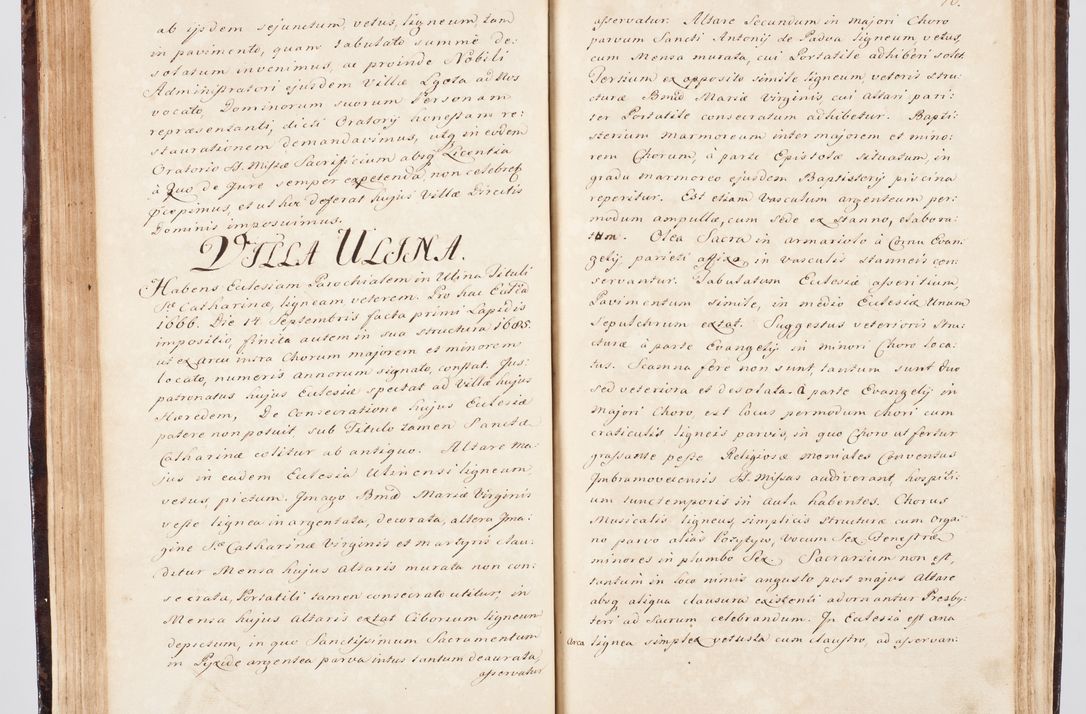 ab ijsdem sejunctum, vetus, ligneum, tam
in pavimento, quam tabulato summè de:
solatum invenimus, ac proinde Nobili
Administratori ejusdem Villæ Lgota ad Nos
vocato, Dominorum suorum Personam
repræsentanti, dicti Oratorij honestam re:
staurationem demandavimus, utq in eodem
Oratorio SS. Missæ Sacrificium absq Licentia
à Quo de Jure semper expetenda, non celebret
præcepimus, et ut huc deferat hujus Villæ Directis
Dominis imposuimus.
VILLA ULINA.
Habens Ecclesiam Parochialem in Ulina Tituli
Stæ Catharinæ, ligneam veterem. Pro hac Ecclia
1666. Die 14 Septembris facta primi Lapidis
impositio, finita autem in sua structura 1685.
ut ex arcu intra Chorum majorem et minorem
locato, numeris annorum signato, constat. Jus
patronatus hujus Ecclesiæ spectat ad Villæ hujus
Hæredem, De Consecratione hujus Ecclesiæ
patere non potuit, sub Titulo tamen Sanctæ
Catharinæ colitur ab antiquo. Altare ma:
jus in eadem Ecclesia Ulinensi ligneum
vetus, pictum. Jmago Bmæ Mariæ Virginis
veste lignea inargentata, decorata, altera Jma:
gine Stæ Catharinæ Virginis et martyris clau:
ditur Mensa hujus Altaris murata non con:
secrata, Portatili tamen consecrato utitur, in
Mensa hujus Altaris extat Ciborium ligneum
depictum, in quo Sanctissimum Sacramentum
in Pyxide argentea parva intus tantum deaurata,
asservatur
asservatur. Altare Secundum in majori Choro
parvum Sancti Antonij de Padva ligneum, vetus,
cum Mensa murata, cui Portatile adhiberi solet.
Tertium ex opposito simile ligneum, veteris stru:
cturæ Bmæ Mariæ Virginis, cui Altari pari:
ter Portatile consecratum adhibetur. Bapti:
sterium marmoreum inter majorem et mino:
rem Chorum, à parte Epistolæ situatum, in
gradu marmoreo ejusdem Baptisterij piscina
reperitur. Est etiam Vasculum argenteum per:
modum ampullæ, cum sede ex stanno, elabora:
tum. Olea Sacra in armariolo à Cornu Evan:
gelij parieti affixo in vasculis stanneis con:
servantur. Tabulatum Ecclesiæ asseritium,
Pavimentum simile, in medio Ecclesiæ Unum
Sepulchrum extat. Suggestus veterioris stru:
cturæ à parte Evangelij in minori Choro loca:
tus. Scamna fere non sunt, tantum sunt duo
sed veteriora et desolata. à parte Evangelij in
majori Choro, est locus permodum chori cum
craticulis ligneis parvis, in quo Choro ut fertur
grassante peste Religiosæ moniales Conventus
Jmbramovicensis SS. Missas audiverant, hospiti:
um tunc temporis in aula habentes. Chorus
Musicalis ligneus, simplicis structuræ cum Orga:
no parvo aliàs Pozytyw, vocum Sex. Fenestræ
minores in plumbo Sex. Sacrarium non est,
tantum in loco nimis angusto post majus Altare
absq aliqua clausura existenti adornantur Presby:
teri ad Sacrum celebrandum. In Ecclesia est una
Arca lignea simplex vetusta cum claustro, ad asservan: